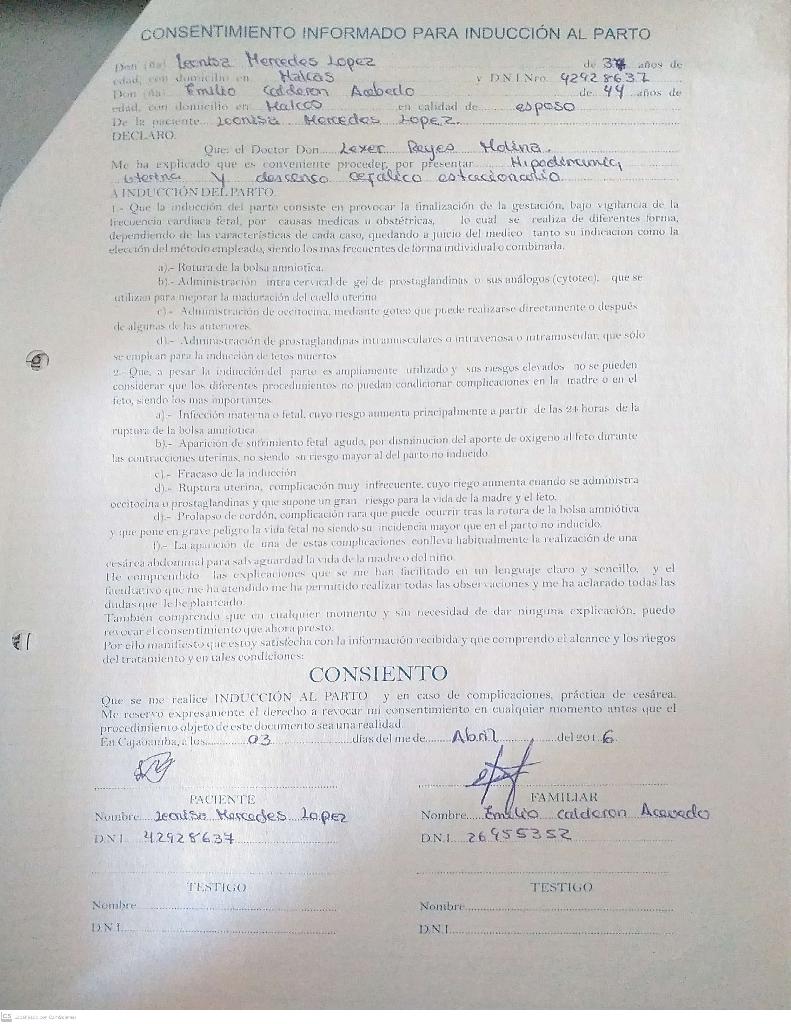 CONSENTIMIENTO INFORMADO PARA INDUCCIÓN AL PARTO
Don (ña) Leonisa Mercedes Lopez de 37 años de
edad, con domicilio en Malcas y D.N.I Nro. 42928637
Don (ña) Emilio Calderon Acebedo de 44 años de
edad, con domicilio en Malcas en calidad de esposo
De la paciente Leonisa Mercedes Lopez.
DECLARO.
Que: el Doctor Don Lexer Reyes Molina.
Me ha explicado que es conveniente proceder, por presentar Hipodinamia
uterina y descenso cefalico estacionario
A INDUCCIÓN DEL PARTO.
1.- Que la inducción del parto consiste en provocar la finalización de la gestación, bajo vigilancia de la
frecuencia cardiaca fetal, por causas medicas u obstétricas, lo cual se realiza de diferentes forma,
dependiendo de las características de cada caso, quedando a juicio del medico tanto su indicación como la
elección del método empleado, siendo los mas frecuentes de forma individual o combinada.
a).- Rotura de la bolsa amniotica.
b).- Administración intra cervical de gel de prostaglandinas o sus análogos (cytotec), que se
utilizan para mejorar la maduración del cuello uterino
c).- Administración de occitocina, mediante goteo que puede realizarse directamente o después
de algunas de las anteriores.
d).- Administración de prostaglandinas intramusculares o intravenosa o intramuscular, que sólo
se emplean para la inducción de fetos muertos
2.- Que, a pesar la inducción del parto es ampliamente utilizado y sus riesgos elevados no se pueden
considerar que los diferentes procedimientos no puedan condicionar complicaciones en la madre o en el
feto, siendo los mas importantes.
a).- Infección materna o fetal, cuyo riesgo aumenta principalmente a partir de las 24 horas de la
ruptura de la bolsa amniotica
b).- Aparición de sufrimiento fetal agudo, por disminucion del aporte de oxigeno al feto durante
las contracciones uterinas, no siendo su riesgo mayor al del parto no inducido.
c).- Fracaso de la inducción
d).- Ruptura uterina, complicación muy infrecuente, cuyo riego aumenta cuando se administra
occitocina o prostaglandinas y que supone un gran riesgo para la vida de la madre y el feto.
d).- Prolapso de cordón, complicación rara que puede ocurrir tras la rotura de la bolsa amniótica
y que pone en grave peligro la vida fetal no siendo su incidencia mayor que en el parto no inducido.
f).- La aparición de una de estas complicaciones conlleva habitualmente la realización de una
cesárea abdominal para salvaguardad la vida de la madre o del niño.
He comprendido las explicaciones que se me han facilitado en un lenguaje claro y sencillo, y el
facultativo que me ha atendido me ha permitido realizar todas las observaciones y me ha aclarado todas las
dudas que le he planteado.
También comprendo que en cualquier momento y sin necesidad de dar ninguna explicación, puedo
revocar el consentimiento que ahora presto.
Por ello manifiesto que estoy satisfecha con la información recibida y que comprendo el alcance y los riegos
del tratamiento y en tales condiciones:
CONSIENTO
Que se me realice INDUCCIÓN AL PARTO y en caso de complicaciones, práctica de cesárea.
Me reservo expresamente el derecho a revocar mi consentimiento en cualquier momento antes que el
procedimiento objeto de este documento sea una realidad.
En Cajabamba, a los 03 días del me de Abril del 2016.
PACIENTE FAMILIAR
Nombre Leonisa Mercedes Lopez Nombre Emilio Calderon Acevedo
D.N.I. 42928637 D.N.I. 26955352
TESTIGO TESTIGO
Nombre Nombre
D.N.I. D.N.I.
CS Escaneado con CamScanner